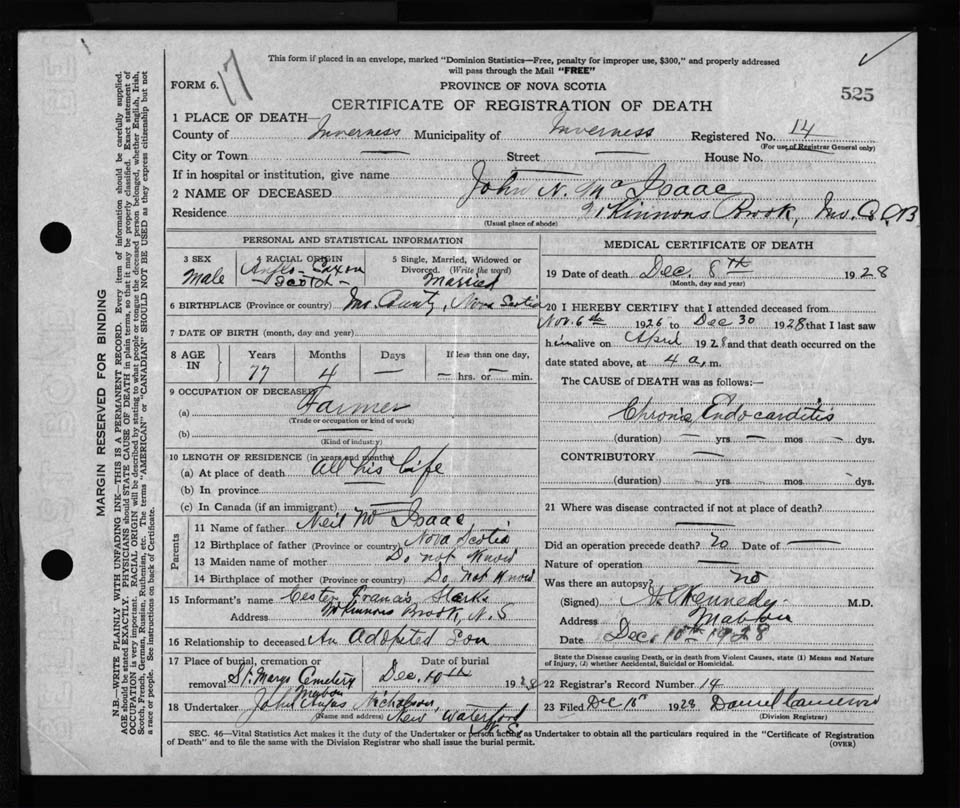 This form if placed in an envelope, marked "Dominion Statistics—Free, penalty for improper use, $300," and properly addressed
will pass through the Mail "FREE"
FORM 6. 17
PROVINCE OF NOVA SCOTIA
525
CERTIFICATE OF REGISTRATION OF DEATH
1 PLACE OF DEATH—
County of Inverness Municipality of Inverness Registered No. 14
(For use of Registrar General only)
City or Town — Street — House No.
If in hospital or institution, give name
2 NAME OF DECEASED John N. Mc Isaac
Residence Kinnons Brook, Inv. Co, CB
(Usual place of abode)
PERSONAL AND STATISTICAL INFORMATION
3 SEX
Male
RACIAL ORIGIN
Anglo-Saxon
Scotch
5 Single, Married, Widowed or
Divorced. (Write the word)
Married
6 BIRTHPLACE (Province or country) Inv. County, Nova Scotia
7 DATE OF BIRTH (month, day and year)
8 AGE IN
Years Months Days If less than one day,
77 4 — — hrs. or — min.
9 OCCUPATION OF DECEASED
(a) Farmer
(Trade or occupation or kind of work)
(b) —
(Kind of industry)
10 LENGTH OF RESIDENCE (in years and months)
(a) At place of death all his life
(b) In province —
(c) In Canada (if an immigrant)
Parents
11 Name of father Neil Mc Isaac
12 Birthplace of father (Province or country) Nova Scotia
13 Maiden name of mother Do not Know
14 Birthplace of mother (Province or country) Do not Know
15 Informant's name Francis
Address McKinnons Brook, N. S
16 Relationship to deceased An Adopted Son
17 Place of burial, cremation or
removal St. Marys Cemetery
Mabou
Date of burial
Dec. 10th 1928
18 Undertaker John Angus Nicholson,
(Name and address) New Waterford
N. S.
MEDICAL CERTIFICATE OF DEATH
19 Date of death Dec. 8TH 1928
(Month, day and year)
20 I HEREBY CERTIFY that I attended deceased from
Nov. 6th 1926 to Dec 30 1928 that I last saw
him alive on April 1928 and that death occurred on the
date stated above, at 4 a. m.
The CAUSE OF DEATH was as follows:—
Chronic Endocarditis
(duration) — yrs — mos — dys.
CONTRIBUTORY —
(duration) yrs. mos. dys.
21 Where was disease contracted if not at place of death?
—
Did an operation precede death? no Date of —
Nature of operation —
Was there an autopsy? no
(Signed) Kennedy M.D.
Address Mabou
Date Dec. 10th 1928
State the Disease causing Death, or in death from Violent Causes, state (1) Means and Nature
of Injury, (2) whether Accidental, Suicidal or Homicidal.
22 Registrar's Record Number 14
23 Filed Dec 1928 Daniel Cameron
(Division Registrar)
SEC. 46—Vital Statistics Act makes it the duty of the Undertaker or person acting as Undertaker to obtain all the particulars required in the "Certificate of Registration
of Death" and to file the same with the Division Registrar who shall issue the burial permit.
(OVER)
MARGIN RESERVED FOR BINDING
N.B.—WRITE PLAINLY WITH UNFADING INK—THIS IS A PERMANENT RECORD. Every item of information should be carefully supplied.
AGE should be stated EXACTLY. PHYSICIANS should STATE CAUSE OF DEATH in plain terms, so that it may be properly classified. Exact statement of
OCCUPATION is very important. RACIAL ORIGIN will be described by stating to what people or tongue the deceased person belonged, whether English, Irish,
Scotch, French, German, Russian, Ruthenian, etc. The terms "AMERICAN" or "CANADIAN" SHOULD NOT BE USED as they express citizenship but not
a race or people. See instructions on back of Certificate.